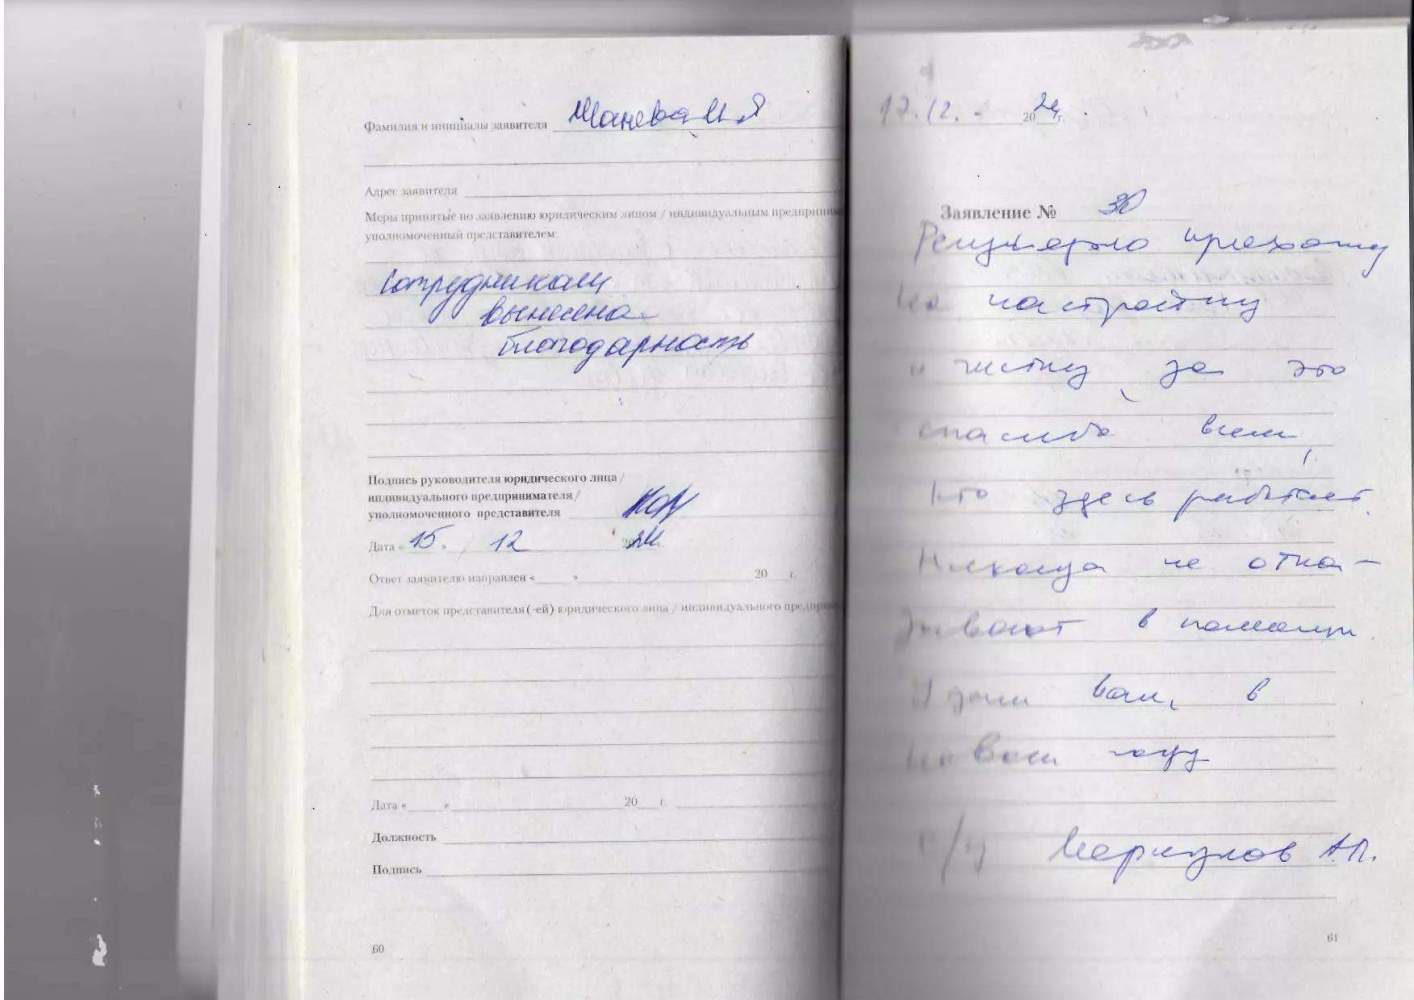 Фамилия и инициалы заявителя Шанева И Я
Адрес заявителя
Меры принятые по заявлению юридическим лицом / индивидуальным предприним
уполномоченный представителем:
Сотрудникам
вынесена
благодарность
Подпись руководителя юридического лица /
индивидуального предпринимателя /
уполномоченного представителя
Дата « 15. 12 24
Ответ заявителю направлен « » 20 г.
Для отметок представителя (-ей) юридического лица / индивидуального предприн
Дата « » 20 г.
Должность
Подпись
60
17.12. 2024г.
Заявление № 30
Регулярно прихожу
на настройку
и чистку за это
спасибо всем,
кто здесь работает.
Никогда не отка-
зывают в помощи
Удачи вам, в
новом году
с/у А.П.
61